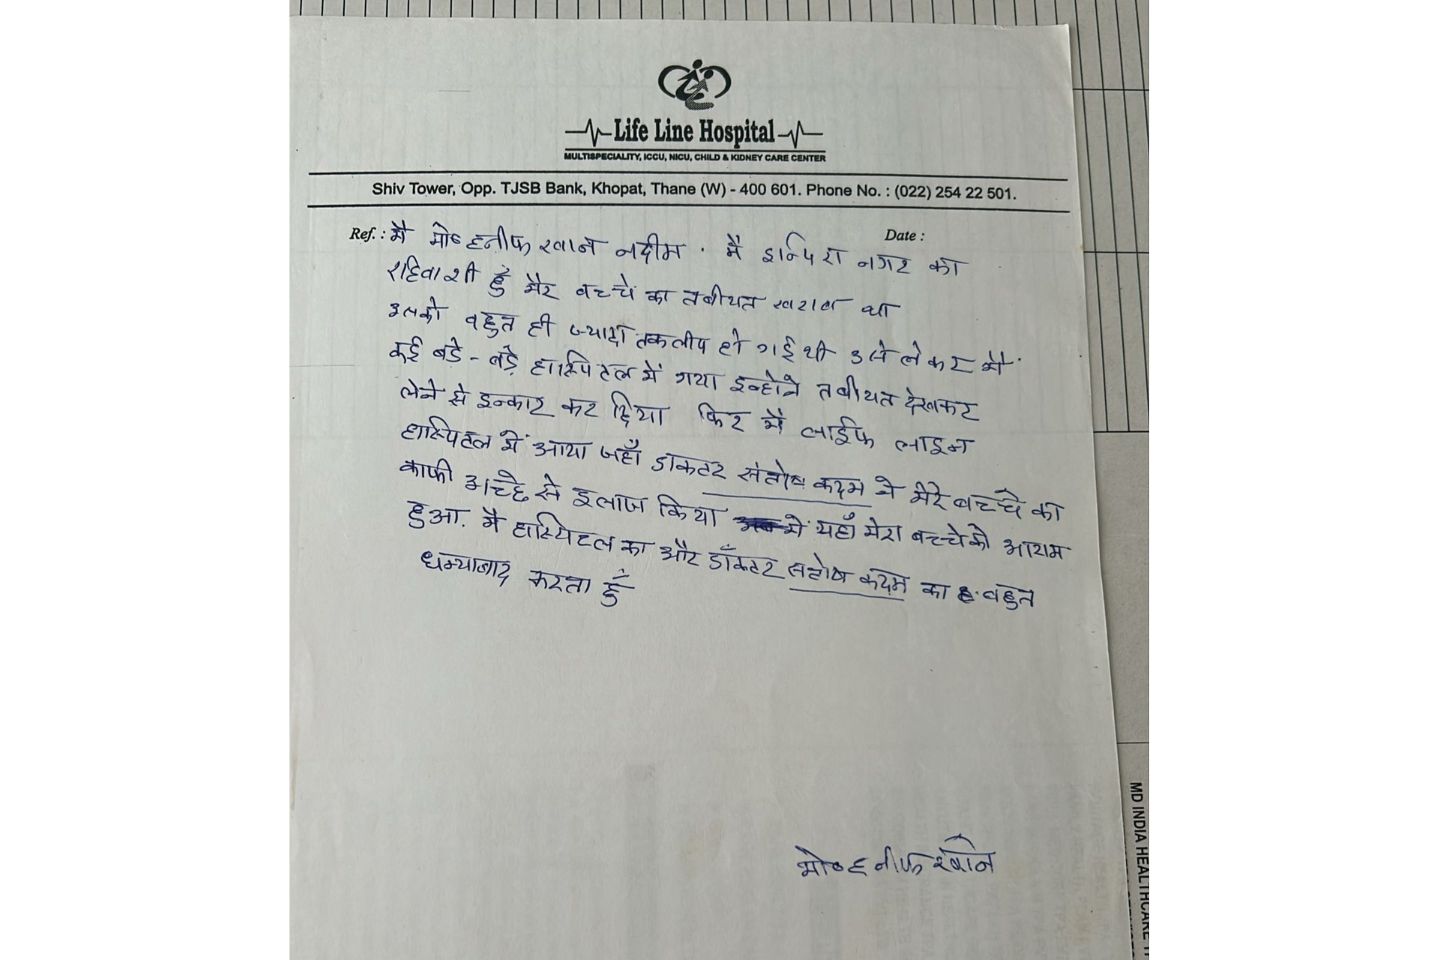 Life Line Hospital
MULTISPECIALITY, ICCU, NICU, CHILD & KIDNEY CARE CENTER
Shiv Tower, Opp. TJSB Bank, Khopat, Thane (W) - 400 601. Phone No. : (022) 254 22 501.
Ref. : Date :
मै मो॰ हनीफ खान नदीम. मै इन्दिरा नगर का
रहिवाशी हुँ मेर बच्चे का तबीयत खराब था
उसको बहुत ही ज्यादा तकलीप हो गई थी उसे लेकर मै
कई बडे - बडे हास्पिटल में गया इन्होने तबीयत देखकर
लेने से इन्कार कर दिया फिर मै लाईफ लाइन
हास्पिटल में आया जहाँ डाकटर संतोष कदम ने मेरे बच्चे का
काफी अच्छे से इलाज किया में यहाँ मेरा बच्चे को आराम
हुआ. मै हास्पिटल का और डॉकटर सतोष कदम का बहुत
धन्याबाद करता हुँ
मो॰ हनीफ खान
MD INDIA HEALTHCARE